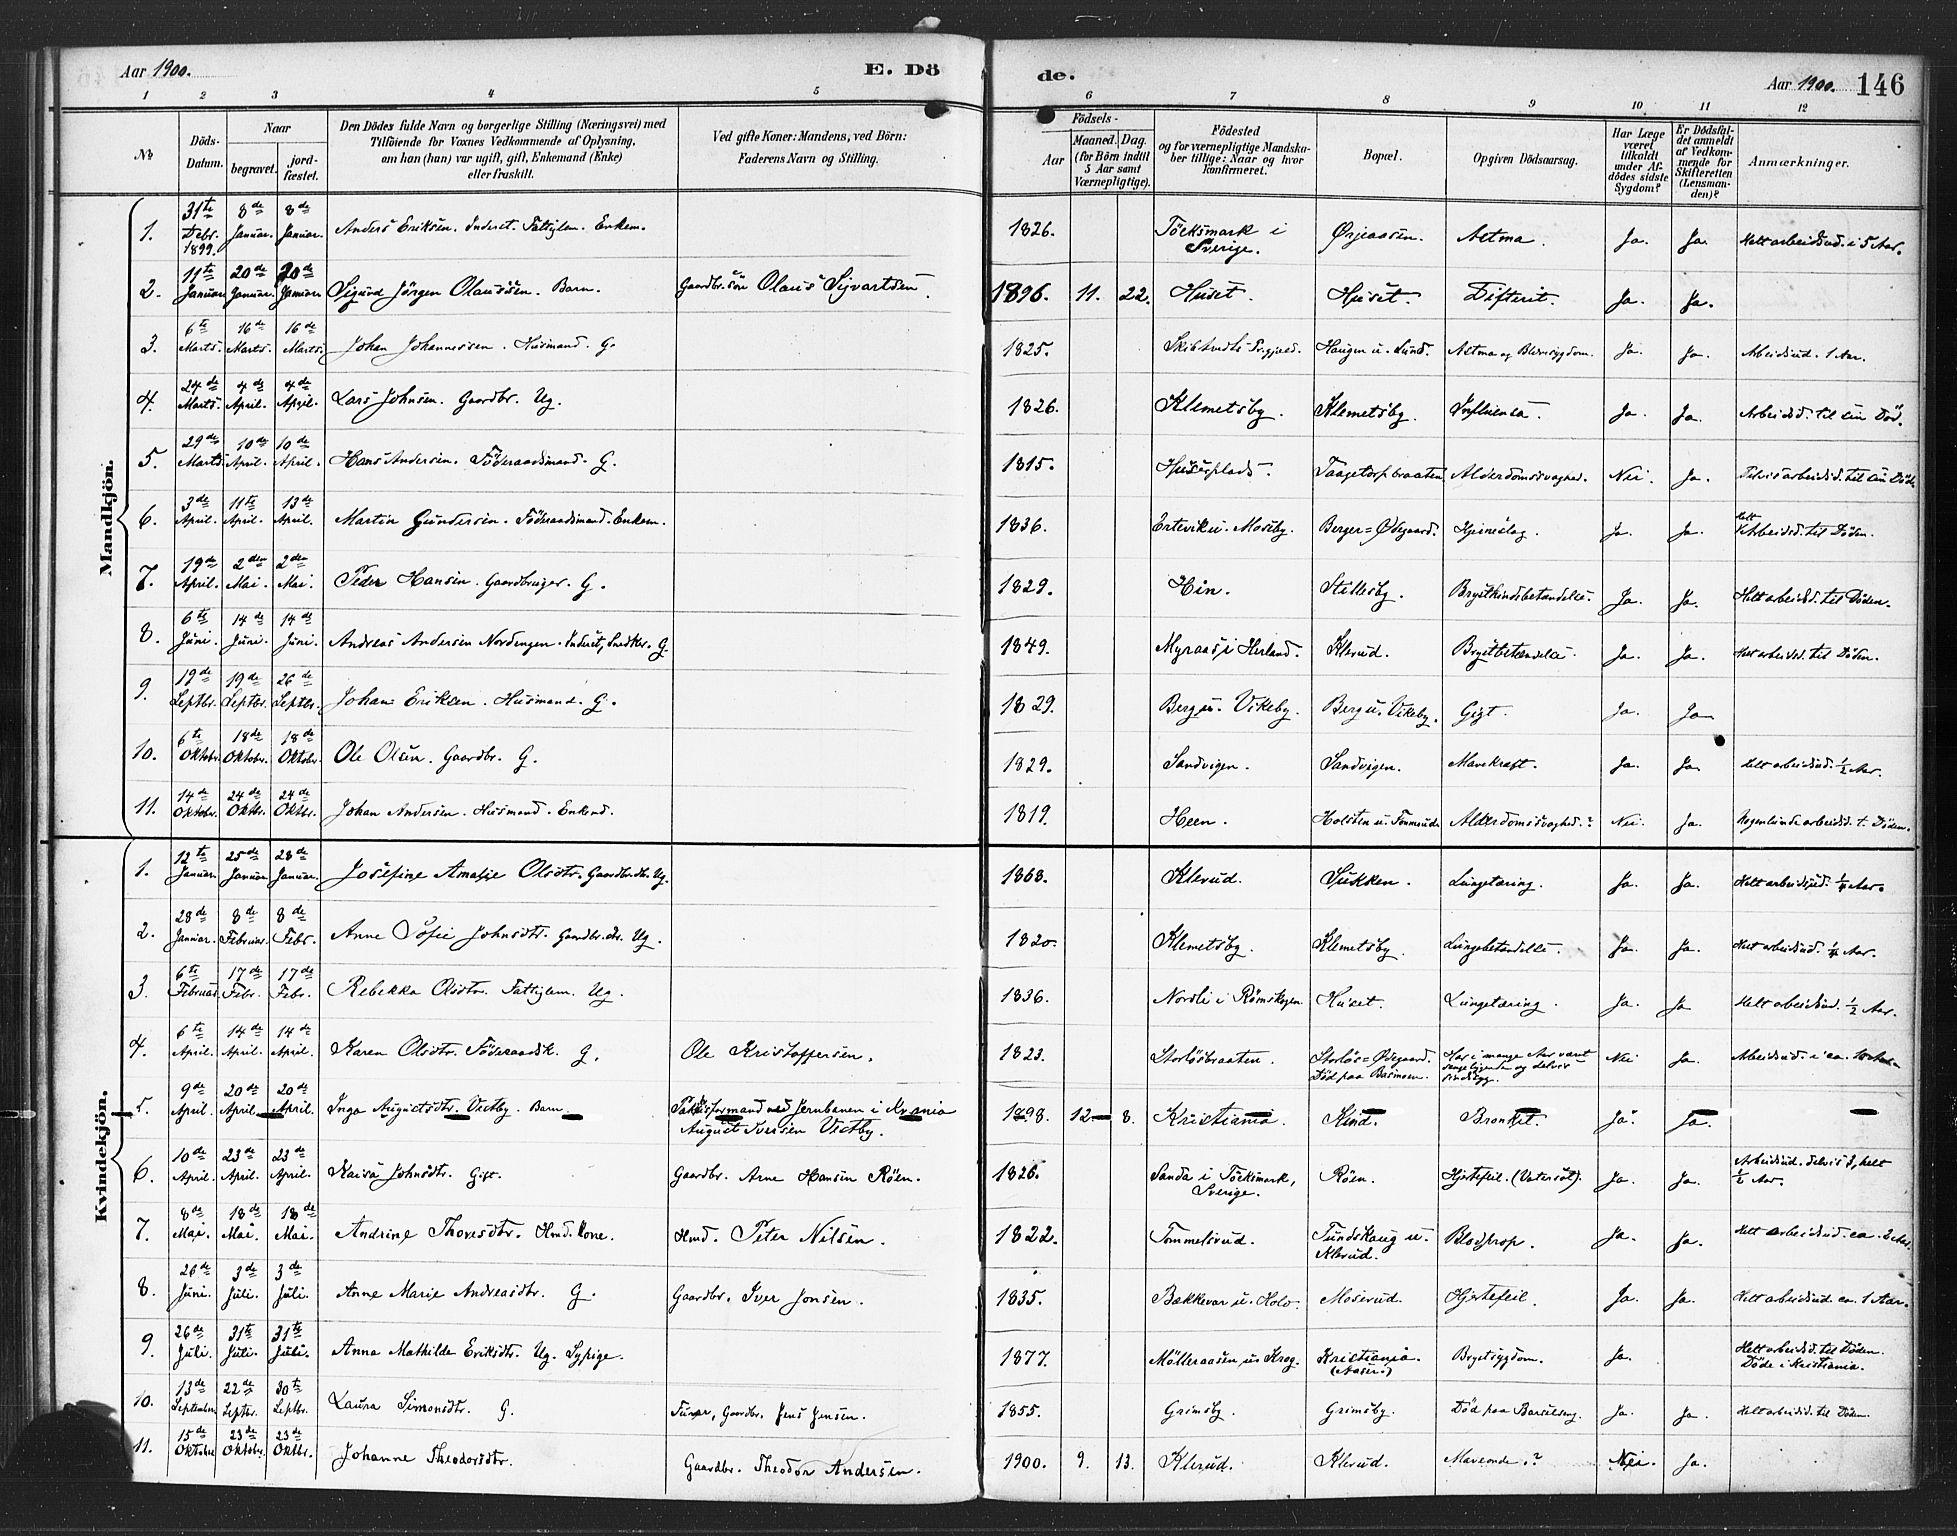 Aar 1900. E. Dö de. Aar 1900. 146
1 2 3 4 5 6 7 8 9 10 11 12
№
Döds-Datum.
Naar
begravet.
jord-fæstet.
Den Dödes fulde Navn og borgerlige Stilling (Næringsvei) med
Tilföiende for Voxnes Vedkommende af Oplysning,
om han (hun) var ugift, gift, Enkemand (Enke)
eller fraskilt.
Ved gifte Koner: Mandens, ved Börn:
Faderens Navn og Stilling.
Födsels-
Aar
Maaned. Dag.
(for Börn indtil
5 Aar samt
Værnepligtige).
Födested
og for værnepligtige Mandska-
ber tillige: Naar og hvor
konfirmeret.
Bopæl.
Opgiven Dödsaarsag.
Har Læge
været
tilkaldt
under Af-
dödes sidste
Sygdom?
Er Dödsfal-
det anmeldt
af Vedkom-
mende for
Skifteretten
(Lensman-
den)?
Anmærkninger.
Mandkjön.
1. 31te Debr. 1899. 8de Januar. 8de Januar. Anders Eriksen. Inderst. Fattiglem. Enkem. 1826. Töcksmark i Sverige. Ørjeaasen. Astma. Ja. Ja. Helt arbeidsud. i 5 Aar.
2. 11te Januar 20de Januar. 20de Januar Sigurd Jörgen Olaussen. Barn. Gaardbr.sön Olaus Sigvartsen. 1896. 11. 22. Huset. Huset. Difterit. Ja. Ja.
3. 6te Marts. 16de Marts. 16de Marts. Johan Johannessen. Husmand. G. 1825. Haugen u. Lund. Astma og Ja. Ja. Arbeidsud. 1 Aar.
4. 24de Marts. 4de April. 4de April. Lars Johnsen. Gaardbr. Ug. 1826. Klemetsby. Klemetsby. Influensa. Ja. Ja. Arbeidsd. til sin Död.
5. 29de Marts. 10de April. 10de April. Hans Andersen. Föderaadsmand. G. 1815. Huserplads. Taagetorpbraaten Alderdomssvaghed. Nei. Ja. Delvis arbeidsd. til sin Död
6. 3de April. 11te April. 13de April. Martin Gundersen. Föderaadsmand. Enkem. 1836. Erteviku. Mosby. Berger=Ødegaard. Hjerneslag. Ja. Ja. Helt Arbeidsd. til Döden.
7. 19de April. 2den Mai. 2den Mai. Peder Hansen. Gaardbruger. G. 1829. Hin. Stillesby. Brysthindebetændelse. Ja. Ja. Helt arbeidsd. til Döden.
8. 6te Juni. 14de Juni. 14de Juni. Andreas Andersen Nordengen. Inderst, Snedker. G. 1849. Myraas i Herland. Klerud. Brystbetændelse. Ja. Ja. Har arbeidsd. til Döden.
9. 19de Septbr. 19de Septbr. 26de Septbr. Johan Eriksen. Husmand. G. 1829. Berg u. Vikeby. Berg u. Vikeby. Gigt. Ja. Ja.
10. 6te Oktobr. 18de Oktobr. 18de Oktobr. Ole Olsen. Gaardbr. G. 1829. Sandvigen. Sandvigen. Mavekræft. Ja. Ja. Helt arbeidsud. ½ Aar.
11. 14de Oktobr. 24de Oktbr. 24de Oktbr. Johan Andersen. Husmand. Enkemd. 1819. Heen. Holsten u. Tommerud. Alderdomssvaghed.? Nei. Ja. Nogenlunde arbeidsd. t. Döden.
Kvindekjön.
1. 12te Januar. 25de Januar. 28de Januar. Josefine Amalie Olsdtr. Gaardbr.dtr. Ug. 1868. Klerud. Sukken. Lungetæring. Ja. Ja. Helt arbeidsud. ¼ Aar.
2. 28de Januar. 8de Februar. 8de Febr. Anne Sofie Johnsdtr. Gaardbr.dtr. Ug. 1820. Klemetsby. Klemetsby. Lungebetændelse. Ja. Ja. Helt arbeidsud. ¼ Aar.
3. 6te Februar. 17de Febr. 17de Febr. Rebekka Olsdtr. Fattiglem. Ug. 1836. Nordli i Römskogen Huset. Lungetæring. Ja. Ja Helt arbeidsud. ½ Aar.
4. 6te April. 14de April. 14de April. Karen Olsdtr. Föderaadsk. G. Ole Kristoffersen. 1823. Storlösbraaten. Storlös=Ødegaard. Död paa Basmoen. Har i mange Aar været sengeliggende og delvis sindssyg. Nei Ja. Arbeidsud. i ca.
5. 9de April. 20de April. 20de April. Inga Augustsdtr. Vestby. Barn. Pakhusformand ved Jernbanen i Krania August Iversen Vestby. 1898. 12 8. Kristiania. Kind. Bronkit. Ja. Ja.
6. 10de April. 23de April. 23de April. Kaisa Johnsdtr. Gift. Gaardbr. Arne Hansen Röen. 1826. Sanda i Töcksmark, Sverige. Röen. Hjertefeil. (Vatersot). Ja. Ja. Arbeidsud. delvis 2, helt ½ Aar.
7. 8de Mai. 18de Mai. 18de Mai. Andrine Thoresdtr. Hmd. Kone. Hmd. Peter Nilsen. 1822. Tommelsrud. Tundskaug u. Klerud. Blodprop. Ja. Ja. Helt arbeidsud. ca. 2 Aar.
8. 26de Juni. 3de Juli. 3de Juli. Anne Marie Andreasdtr. G. Gaardbr. Iver Jonsen. 1835. Bækkevar u. Holo. Moserud. Hjertefeil. Ja. Ja. Helt arbeidsud. ca. 1 Aar.
9 26de Juli. 31te Juli. 31te Juli. Anna Mathilde Eriksdtr. Ug. Sypige. 1877. Mölleraasen u. Krog. Kristiania. Brystsygdom. Ja. Helt arbeidsd. til Döden. Döde i Kristiania.
10. 13de Septembr. 22de Septbr. 30te Septbr. Laura Simonsdtr. G. Gaardbr. Jens Jensen. 1855. Grimsby. Grimsby. Död paa Barselseng. Ja. Ja. Helt arbeidsd. til Döden.
11. 15de Oktobr. 23de Oktobr. 23de Oktbr. Johanne Theodorsdtr. Gaardbr. Theodor Andersen. 1900. 9. 13. Klerud. Klerud. Maveonde.? Nei. Ja.